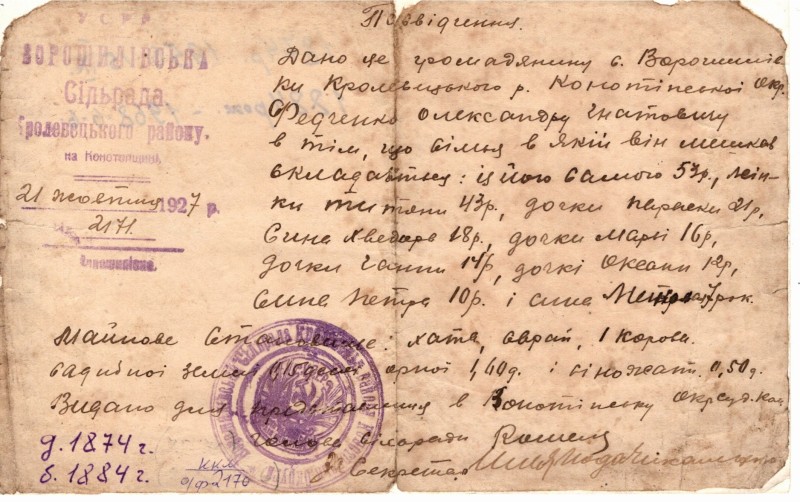 УСРР
ВОРОШИЛІВСЬКА
Сільрада
Кролевецького району.
на Конотопщині,
21 жовтня 1927 р.
2171.
Посвідчення.
Дано це громадянину с. Ворошилів
ки Кролевицького р. Конотіпської Окр.
Федченко Олександру Гнатовичу
в тім, що сімья в якій він мешкає
складається: із його самого 53р., жін-
ки Титяни 43р., дочки Параски 21р,
Сина Хведора 18р., дочки Марьі 16р,
дочки Ганни 14р, дочкі Оксани 12р,
Сина Петра 10р. і сина 7 рок.
Майнове Становище: хата, сарай, 1 корова.
садибної землі арної 1,60д. і сіножат. 0,50д.
Видано для представлення в Конотіпську Окрсуд.
Голова Сільради
За Секретар
д. 1874 г.
б. 1884 г.
ККМ
2170